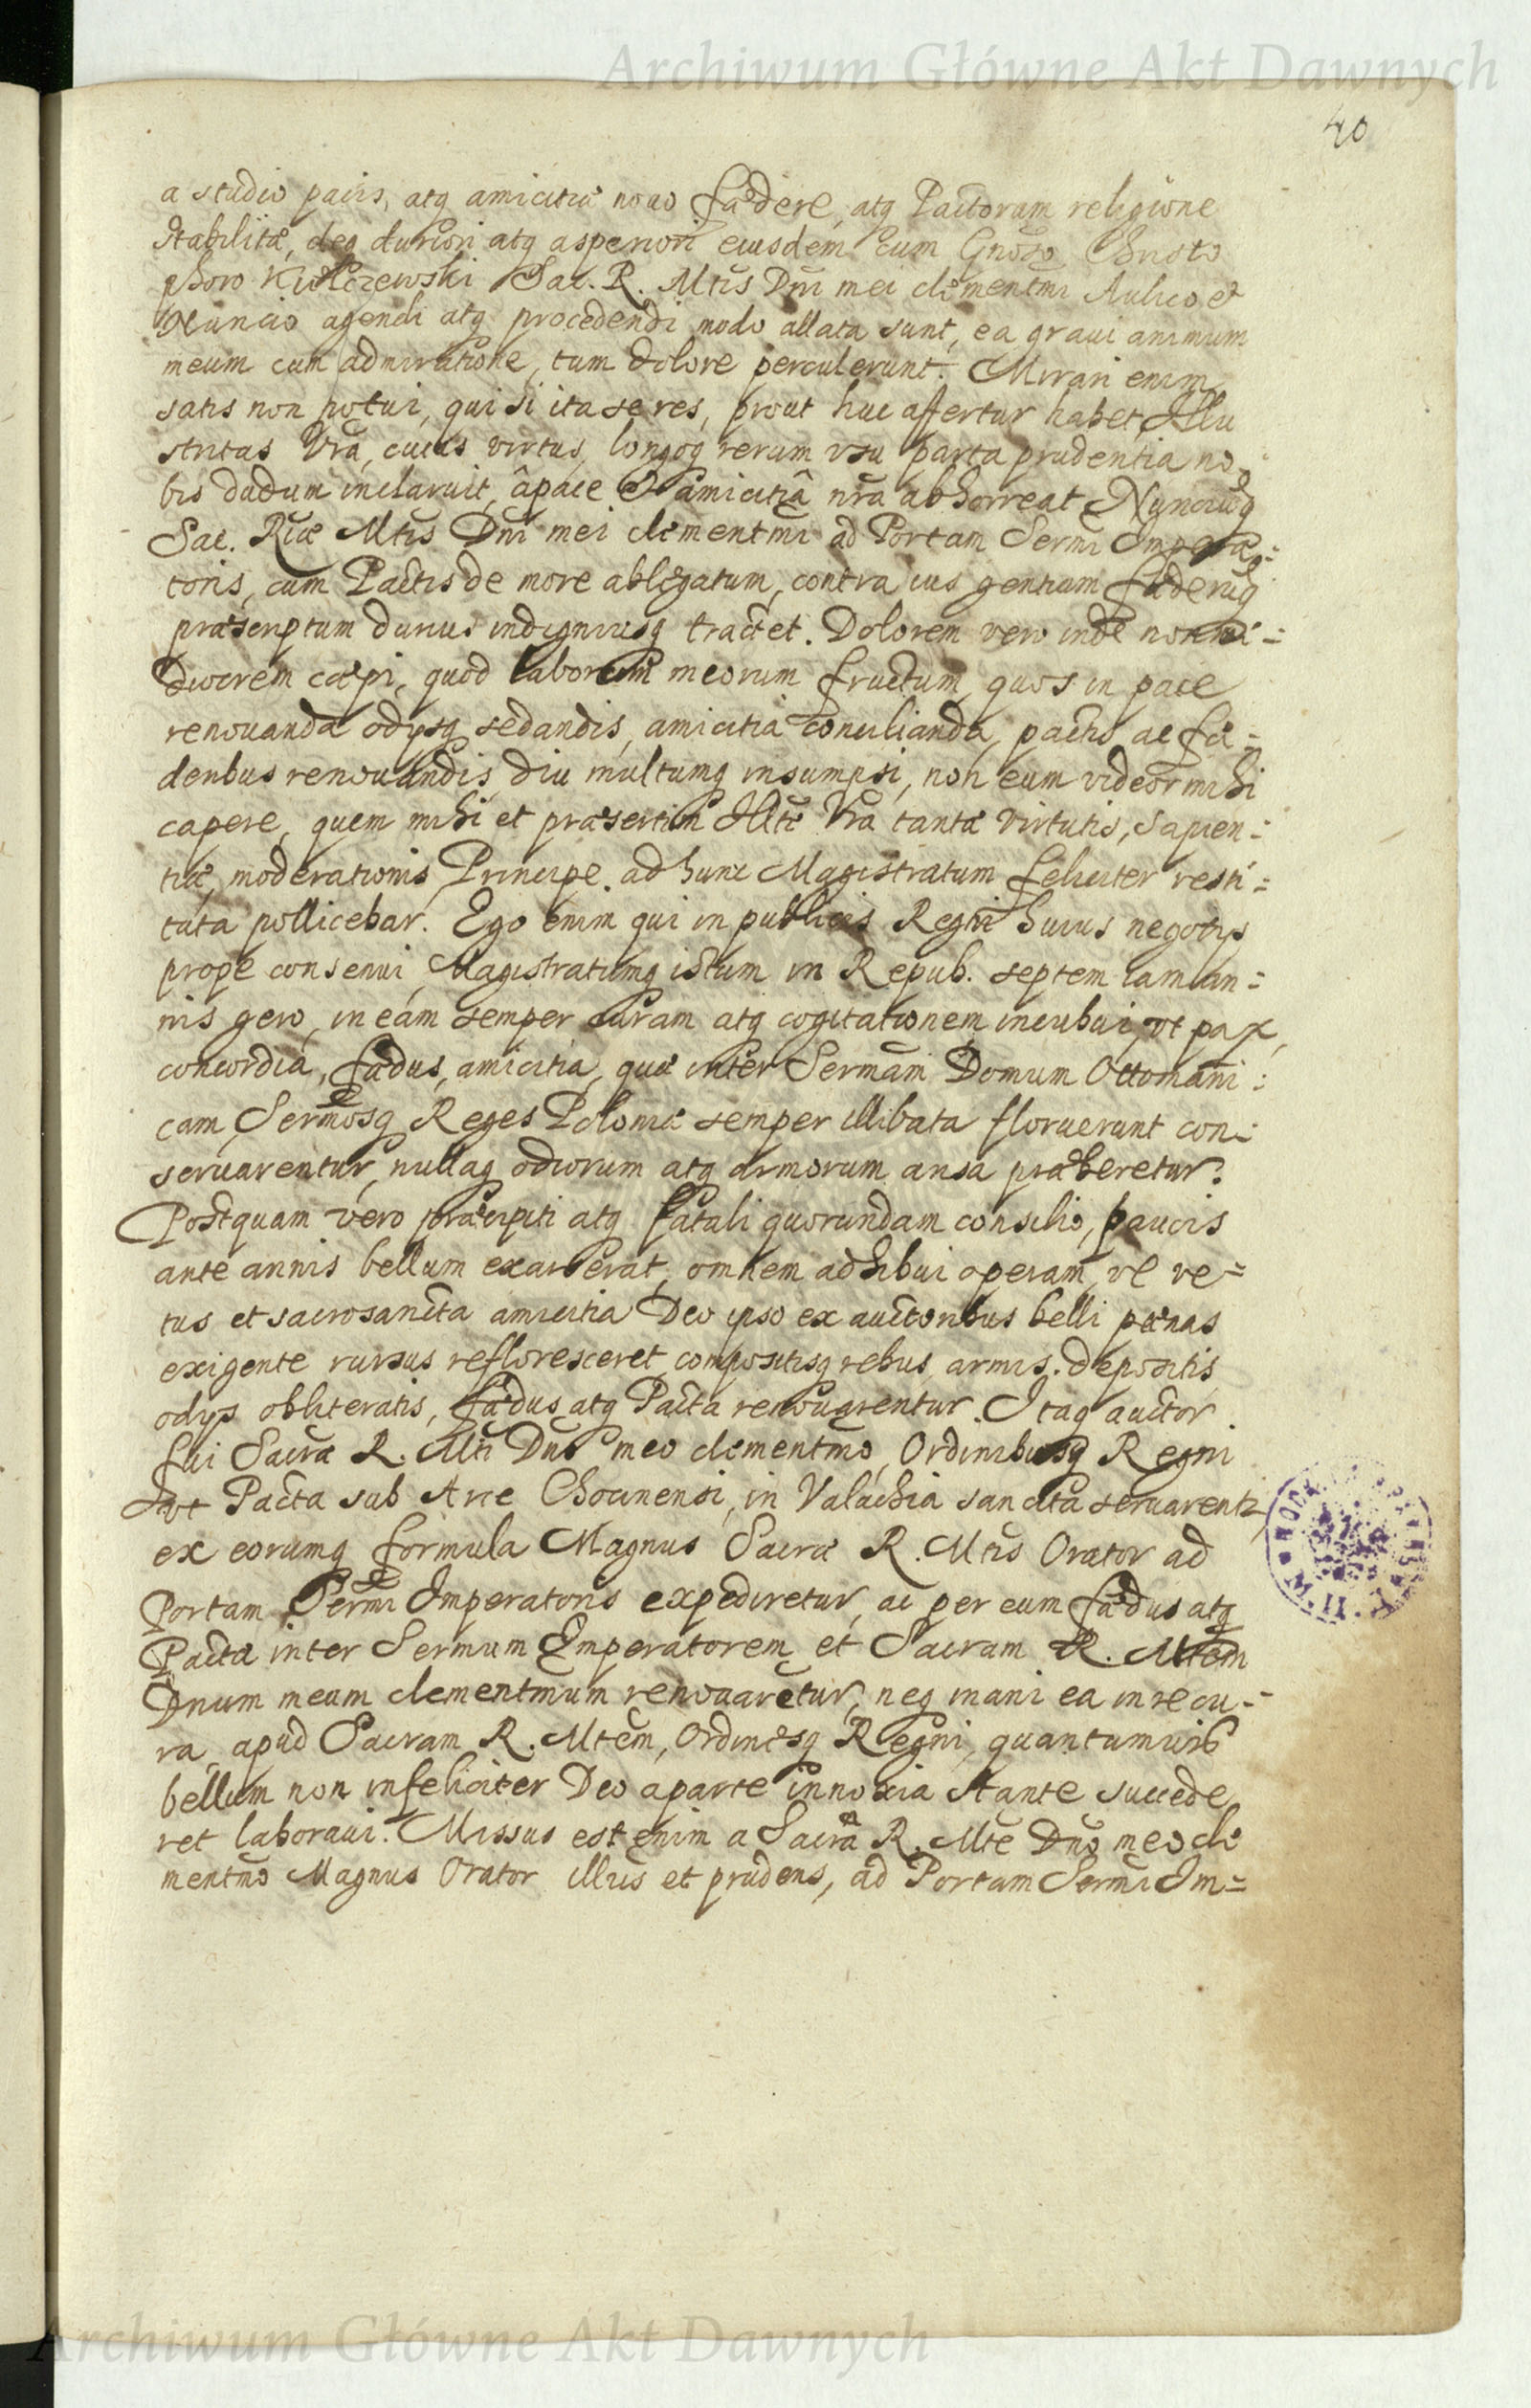 Archiwum Główne Akt Dawnych
40
a studio pacis, atq amicitiæ nouo fædere, atq Pactorum religione
stabilitæ, deq duriori atq asperiori eiusdem cum Gnoso Christo
phoro Kulczewski Sac. R. Mtis Dni mei clementmi Aulico et
Nuncio agendi atq procedendi modo allata sunt, ea graui animum
meum cum admiratione, tum dolore perculerunt. Mirari enim
satis non potui, qui si ita se res, prout huc affertur habet, Illu
stritas Vra, cuius virtus, longoq rerum vsu parta prudentia no=
bis dudum inclaruit, â pace et amicitiâ nrâ abhorreat Nunciumq
Sac. Riæ Mtis Dni mei clementmi ad Portam Sermi Impera=
toris, cum Pactis de more ablegatum, contra ius gentium fæderuq
præscriptum durius indigniusq tractet. Dolorem vero inde non me=
diocrem cæpi, quod laborum meorum fructum, quos in pace
renouanda odijsq sedandis, amicitia concilianda, pactis ac fæ=
deribus renouandis, diu multumq insumpsi, non eum videor mihi
capere, quem mihi et præsertim Illte Vra tantæ virtutis, sapien=
tiæ, moderationis Principe ad hunc Magistratum feliciter resti=
tuta pollicebar. Ego enim qui in publicis Regni huius negotijs
prope consenui, Magistratumq istum in Repub. septem iam an=
nis gero, in eam semper curam atq cogitationem incubui, vt pax,
concordia, fædus, amicitia, quæ inter Sermam Domum Ottomani=
cam, Sermosq Reges Poloniæ semper illibata floruerunt con=
seruarentur, nullaq odiorum atq armorum ansa præberetur.
Postquam vero præcipiti atq fatali quorundam consilio, paucis
ante annis bellum exarserat, omnem adhibui operam, vt ve=
tus et sacrosancta amicitia Deo ipso ex auctoribus belli pœnas
exigente rursus refloresceret, compositisq rebus, armis depositis
odijs obliteratis, fædus atq Pacta renouarentur. Itaq auctor
fui Sacræ R. Mti Dno meo clementmo, Ordinibusq Regni
vt Pacta sub Arce Chocinensi, in Valachia sancita seruarentr,
ex eorumq formula Magnus Sacræ R. Mtis Orator ad
Portam Sermi Imperatoris expediretur, ac per eum fædus atq
Pacta inter Sermum Imperatorem et Sacram R. Mtem
Dnum meum clementmum renouarētur, neq inani ea in re cu=
ra, apud Sacram R. Mtem, Ordinesq Regni, quantumuis
bellum non infeliciter Deo a parte innoxia stante succede
ret laboraui. Missus est enim a Sacra R. Mte Dno meo cle
mentmo Magnus Orator illus et prudens, ad Portam Sermi Im=
Archiwum Główne Akt Dawnych